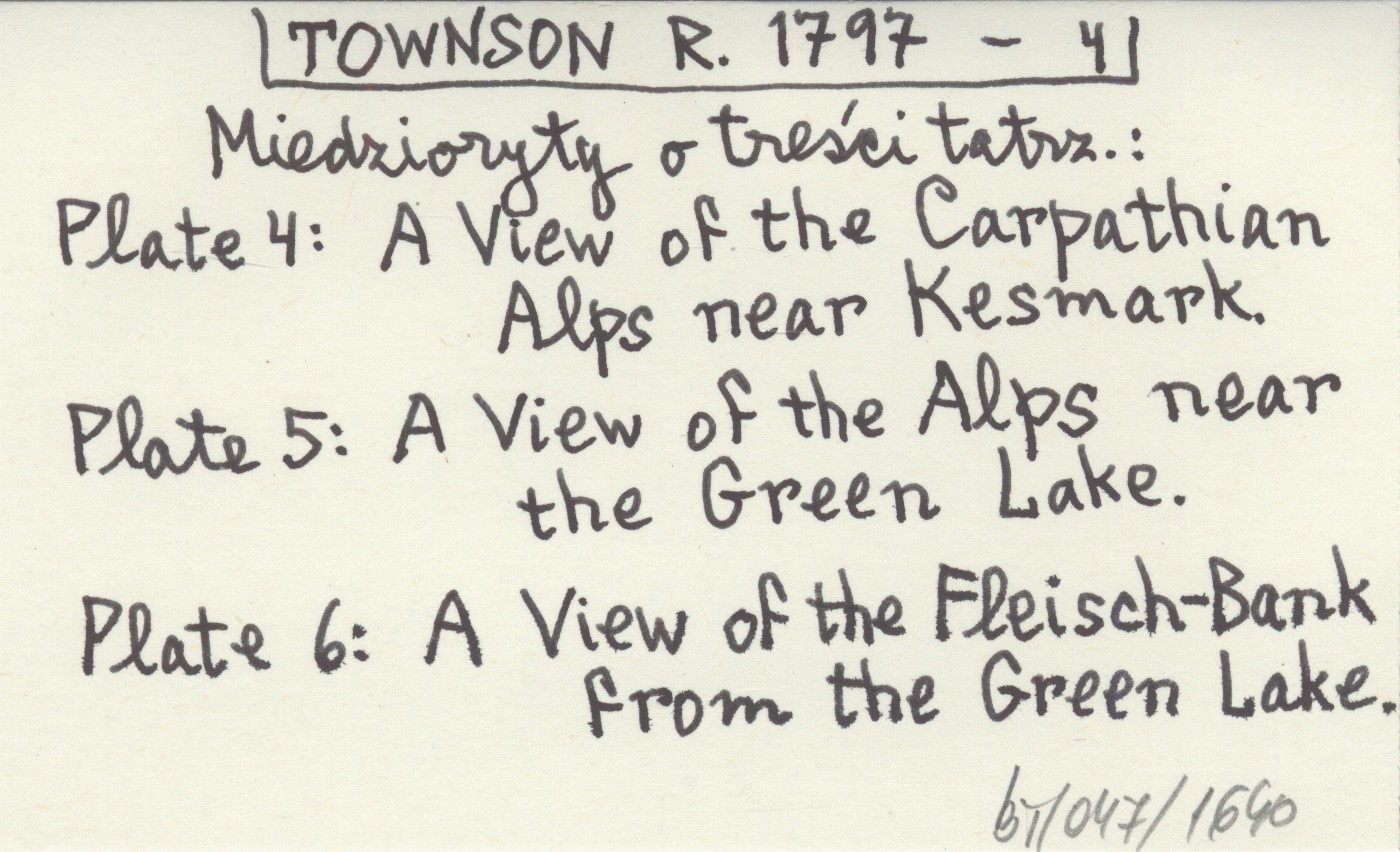 TOWNSON R. 1797 - 4
Miedzioryty o treści tatrz.:
Plate 4: A View of the Carpathian
Alps near Kesmark.
Plate 5: A View of the Alps near
the Green Lake.
Plate 6: A View of the Fleisch-Bank
from the Green Lake.
bT/047/1640